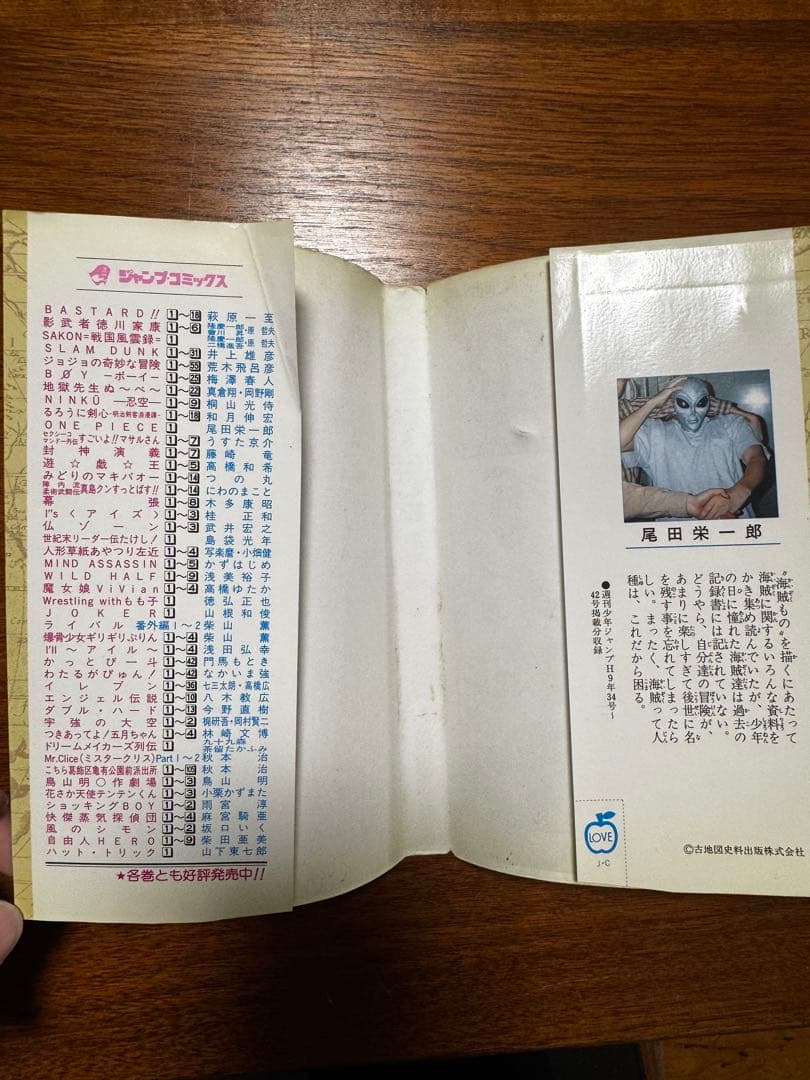 ジャンプ・コミックス
BASTARD!! 1〜18 萩原一至
影武者徳川家康 1〜6 隆慶一郎・會川昇・原哲夫
SAKON=戦国風雲録= 1 隆慶一郎・二橋進吾・原哲夫
SLAM DUNK 1〜31 井上雄彦
ジョジョの奇妙な冒険 1〜55 荒木飛呂彦
BØY ―ボーイ― 1〜25 梅澤春人
地獄先生ぬ〜べ〜 1〜22 真倉翔・岡野剛
NINKŪ ―忍空― 1〜9 桐山光侍
るろうに剣心-明治剣客浪漫譚- 1〜18 和月伸宏
ONE PIECE 1 尾田栄一郎
セクシーコマンドー外伝 すごいよ!!マサルさん 1〜7 うすた京介
封神演義 1〜7 藤崎竜
遊☆戯☆王 1〜5 高橋和希
みどりのマキバオー 1〜14 つの丸
陣内流柔術武闘伝 真島クンすっとばす!! 1〜14 にわのまこと
幕張 1〜8 木多康昭
I"s〈アイズ〉 1〜3 桂正和
仏ゾーン 1〜3 武井宏之
世紀末リーダー伝たけし! 1 島袋光年
人形草紙あやつり左近 1〜4 写楽麿・小畑健
MIND ASSASSIN 1〜5 かずはじめ
WILD HALF 1〜9 浅美裕子
魔女娘ViVian 1〜4 高橋ゆたか
Wrestling withもも子 1 徳弘正也
JOKER 1 山根和俊
ライバル 番外編1〜2 柴山薫
爆骨少女ギリギリぷりん 1〜4 柴山薫
I'll 〜アイル〜 1〜4 浅田弘幸
かっとび一斗 1〜42 門馬もとき
わたるがぴゅん! 1〜44 なかいま強
イレブン 1〜36 七三太朗・高橋広
エンジェル伝説 1〜10 八木教広
ダブル・ハード 1〜13 今野直樹
宇強の大空 1〜2 梶研吾・岡村賢二
つきあってよ!五月ちゃん 1〜4 林崎文博
ドリームメイカーズ列伝 1 九十九森・茶留たかふみ
Mr.Clice(ミスタークリス) Part 1〜2 秋本治
こちら葛飾区亀有公園前派出所 1〜105 秋本治
鳥山明○作劇場 1〜3 鳥山明
花さか天使テンテンくん 1〜3 小栗かずまた
ショッキングBOY 1〜2 雨宮淳
快傑蒸気探偵団 1〜4 麻宮騎亜
風のシモン 1〜2 坂口いく
自由人HERO 1〜9 柴田亜美
ハット・トリック 1 山下東七郎
★各巻とも好評発売中!!
尾田栄一郎
“海賊もの”を描くにあたって
海賊に関するいろんな資料を
かき集め読んでいたが、少年
の日に憧れた海賊達は過去の
記録書には記されていない。
どうやら、自分達の冒険が、
あまりに楽しすぎて後世に名
を残す事を忘れてしまったら
しい。まったく、海賊って人
種は、これだから困る。
●週刊少年ジャンプH9年34号〜
42号掲載分収録
LOVE
J・C
©古地図史料出版株式会社